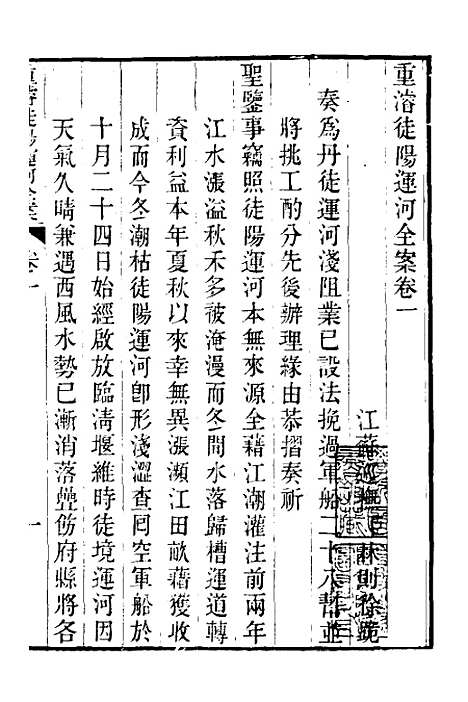 重濬徒陽運河全案卷一
江蘇巡撫臣林則徐跪
奏爲丹徒運河淺阻業已設法挽過軍船二十八幫並
將挑工酌分先後辦理緣由恭摺奏祈
聖鑒事竊照徒陽運河本無來源全藉江潮灌注前兩年
江水漲溢秋禾多被淹漫而冬間水落歸槽運道轉
資利益本年夏秋以來幸無異漲瀕江田畝藉獲收
成而今冬潮枯徒陽運河卽形淺澀查囘空軍船於
十月二十四日始經啟放臨淸堰維時徒境運河因
天氣久晴兼遇西風水勢已漸消落疊飭府縣將各
重濬徒陽運河全案
卷一
一